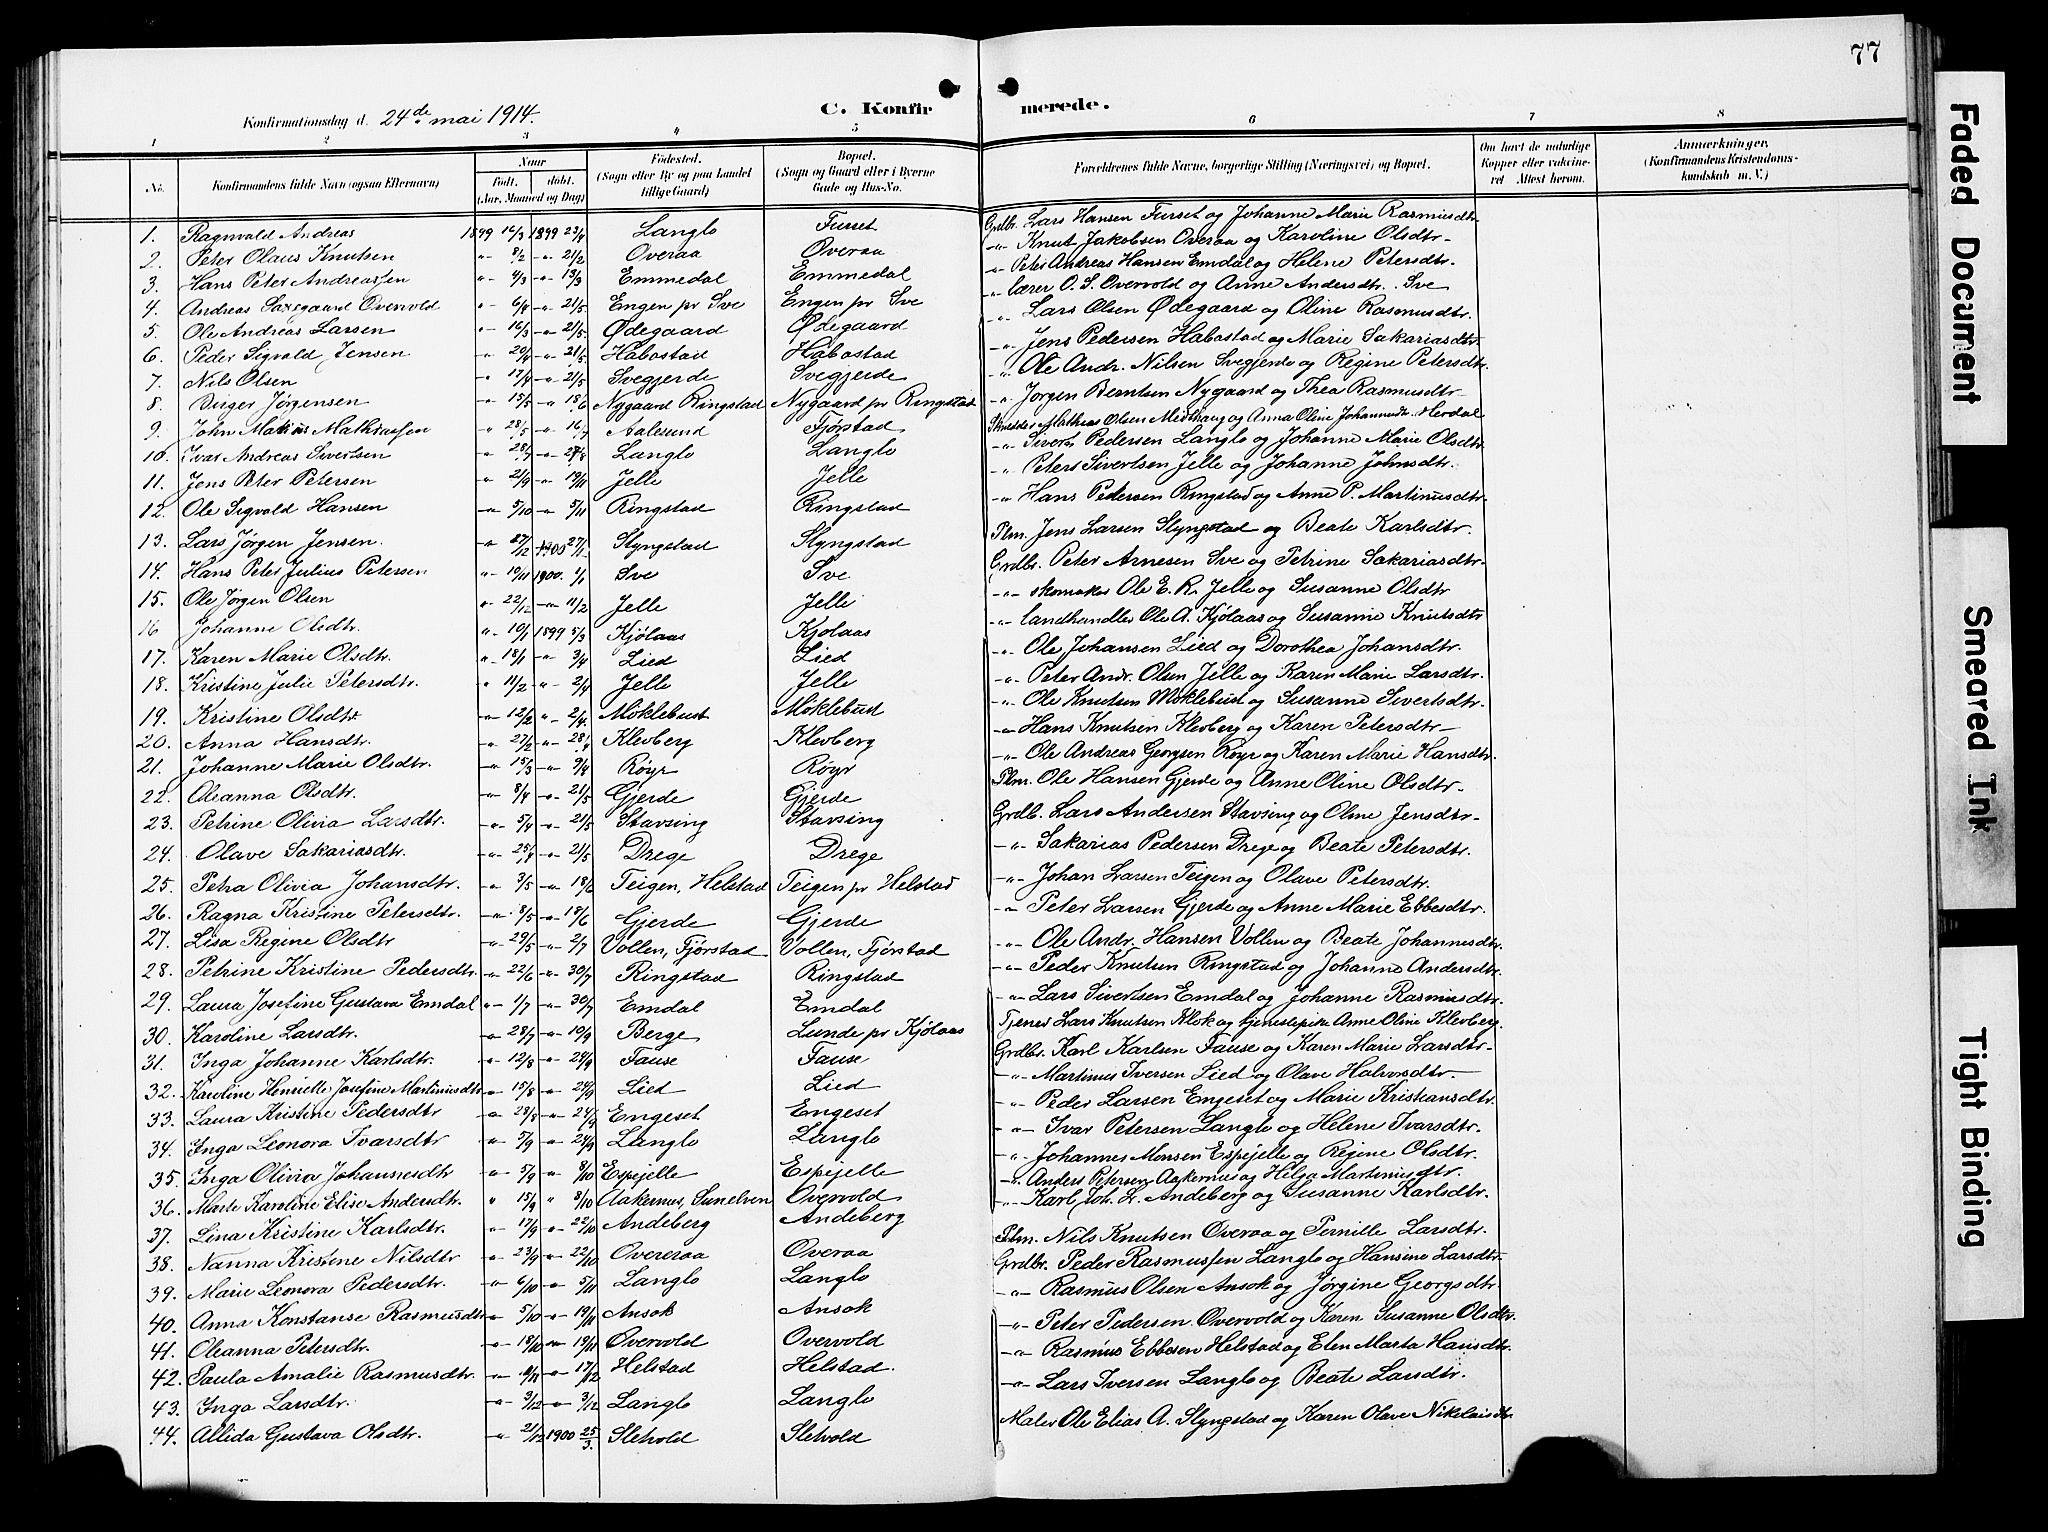 77
Konfirmationsdag d. 24de mai 1914. C. Konfirmerede.
1 2 3 4 5 6 7 8
No. Konfirmandens fulde Navn (ogsaa Efternavn) Naar Født. døbt. (Aar, Maaned og Dag) Fødested. (Sogn eller By og paa Landet tillige Gaard) Bopæl. (Sogn og Gaard eller i Byerne Gade og Hus-No. Forældrenes fulde Navne, borgerlige Stilling (Næringsvei) og Bopæl. Om havt de naturlige Kopper eller vaccineret. Attest herom. Anmærkninger. (Konfirmandens Kristendomskundskab m. V.)
1. Ragnvald Andreas 1899 16/3 1899 23/4 Langlo Furset Grdbr. Lars Hansen Furset og Johanne Marie Rasmusdtr
2. Peter Olaus Knutsen -"- 8/2 -"- 21/2 Overaa Overaa -"- Knut Jakobsen Overaa og Karoline Olsdtr
3. Hans Peter Andreassen -"- 4/3 -"- 19/3 Emmedal Emmedal -"- Peter Andreas Hansen Emdal og Helene Petersdtr.
4. Andreas Saxegaard Overvold -"- 6/4 -"- 21/5 Engen pr Sve Engen pr Sve -"- lærer O. S. Overvold og Anne Andersdtr. Sve
5. Ole Andreas Larsen -"- 16/3 -"- 21/5 Ødegaard Ødegaard -"- Lars Olsen Ødegaard og Oline Rasmusdtr.
6. Peder Sigvald Jensen -"- 20/4 -"- 21/5 Habostad Habostad -"- Jens Pedersen Habostad og Marie Sakariasdtr
7. Nils Olsen -"- 17/4 -"- 21/5 Svegjerde Svegjerde -"- Ole Andr. Nilsen Svegjerde og Regine Petersdtr.
8. Birger Jørgensen -"- 15/5 -"- 18/6 Nygaard Ringstad Nygaard pr Ringstad -"- Jørgen Berntsen Nygaard og Thea Rasmusdtr
9. John Matias Mathiassen -"- 28/5 -"- 16/7 Aalesund Fjørstad Skrædder Mathias Olsen Medthaug og Anna Oline Johannesdtr. Herdal
10. Ivar Andreas Sivertsen -"- 28/7 -"- 27/8 Langlo Langlo -"- Sivert Pedersen Langlo og Johanne Marie Olsdtr.
11. Jens Peter Petersen -"- 2/9 -"- 19/11 Jelle Jelle -"- Peter Sivertsen Jelle og Johanne Johnsdtr.
12. Ole Sigvald Hansen -"- 5/10 -"- 5/11 Ringstad Ringstad -"- Hans Pedersen Ringstad og Anne P. Martinusdtr.
13. Lars Jørgen Jensen. -"- 27/12 1900 27/1 Slyngstad Slyngstad Plm. Jens Larsen Slyngstad og Beate Karlsdtr.
14. Hans Peter Julius Petersen -"- 19/11 1900. 1/1 Sve Sve Grdbr. Peter Arnesen Sve og Petrine Sakariasdtr.
15. Ole Jørgen Olsen -"- 22/12 -"- 11/2 Jelle Jelle -"- skomaker Ole E. R. Jelle og Susanne Olsdtr
16 Johanne Olsdtr. -"- 10/1 1899 5/3 Kjølaas Kjolaas -"- landhandler Ole A. Kjölaas og Susanne Knutsdtr
17. Karen Marie Olsdtr. -"- 18/1 -"- 3/4 Lied Lied -"- Ole Johansen Lied og Dorothea Johansdtr.
18. Kristine Julie Petersdtr. -"- 11/2 -"- 2/4 Jelle Jelle -"- Peter Andr. Olsen Jelle og Karen Marie Larsdtr.
19. Kristine Olsdtr -"- 12/2 -"- 2/4 Moklebust Möklebust -"- Ole Knutsen Möklebust og Susanne Sivertsdtr.
20. Anna Hansdtr. -"- 27/2 -"- 28/4 Klevberg Klevberg -"- Hans Knutsen Klevberg og Karen Petersdtr
21. Johanne Marie Olsdtr. -"- 15/3 -"- 9/4 Röyr Röyr -"- Ole Andreas Georgsen Röyr og Karen Marie Hansdtr.
22. Oleanna Olsdtr. -"- 8/4 -"- 21/5 Gjerde Gjerde Plm. Ole Hansen Gjerde og Anne Oline Olsdtr
23. Petrine Olivia Larsdtr. -"- 5/4 -"- 21/5 Stavsing Stavsing Grdb. Lars Andersen Stavsing og Oline Jensdtr
24. Olave Sakariasdtr. -"- 25/4 -"- 21/5 Drege Drege -"- Sakarias Pedersen Drege og Beate Petersdtr.
25. Petra Olivia Johansdtr. -"- 3/5 -"- 18/6 Teigen, Helstad Teigen pr Helstad -"- Johan Larsen Teigen og Olave Petersdtr.
26. Ragna Kristine Petersdtr. -"- 8/5 -"- 18/6 Gjerde Gjerde -"- Peter Larsen Gjerde og Anne Marie Ebbesdtr.
27. Lisa Regine Olsdtr -"- 29/5 -"- 2/7 Vollen, Fjørstad Vollen, Fjørstad -"- Ole Andr. Hansen Vollen og Beate Johannesdtr.
28. Petrine Kristine Pedersdtr. -"- 22/6 -"- 30/7 Ringstad Ringstad -"- Peder Knutsen Ringstad og Johanne Andersdtr.
29. Laura Josefine Gustava Emdal -"- 1/7 -"- 30/7 Emdal Emdal -"- Lars Sivertsen Emdal og Johanne Rasmusdtr.
30. Karoline Larsdtr. -"- 28/7 -"- 10/9 Berge Lunde pr Kjölaas Tjener Lars Knutsen Klok og tjenestepike Anne Oline Klevberg.
31. Inga Johanne Karlsdtr. -"- 12/8 -"- 24/9 Fause Fause Grdbr. Karl Karlsen Fause og Karen Marie Larsdtr
32. Karoline Henriette Josefine Martinusdtr -"- 15/8 -"- 24/9 Lied Lied -"- Martinus Iversen Lied og Olave Halvorsdtr
33. Laura Kristine Pedersdtr -"- 28/8 -"- 24/9 Engeset Engeset -"- Peder Larsen Engeset og Marie Kristiansdtr.
34. Inga Leonora Ivarsdtr -"- 5/9 -"- 24/9 Langlo Langlo -"- Ivar Petersen Langlo og Helene Ivarsdtr.
35. Inga Olivia Johannesdtr -"- 5/9 -"- 8/10 Espejelle Espejelle -"- Johannes Monsen Espejelle og Regine Olsdtr.
36. Marte Karoline Elise Andersdtr. -"- 15/9 -"- 8/10 Aakernus, Sunelven Overvold -"- Anders Petersen Aakernus og Helga Martinusdtr.
37. Lina Kristine Karlsdtr. -"- 17/9 -"- 22/10 Andeberg Andeberg -"- Karl Joh. L. Andeberg og Susanne Karlsdtr.
38. Nanna Kristene Nilsdtr -"- 23/9 -"- 22/10 Overeraa Overaa Plm. Nils Knutsen Overaa og Pernille Larsdtr.
39. Marie Leonora Pedersdtr. -"- 6/10 -"- 5/11 Langlo Langlo Grdbr. Peder Rasmussen Langlo og Hansine Larsdtr
40. Anna Konstanse Rasmusdtr -"- 5/10 -"- 19/11 Ansok Ansok -"- Rasmus Olsen Ansok og Jørgine Georgsdtr.
41. Oleanna Petersdtr. -"- 18/10 -"- 19/11 Overvold Overvold -"- Peter Pedersen Overvold og Karen Susanne Olsdtr.
42. Paula Amalie Rasmusdtr. -"- -"- 17/12 Helstad Helstad. -"- Rasmus Ebbesen Helstad og Elen Marta Hansdtr.
43. Inga Larsdtr. -"- 3/12 -"- 3/12 Langlo Langlo -"- Lars Iversen Langlo og Beate Larsdtr.
44. Allida Gustava Olsdtr. -"- 2/12 1900 25/3 Slehold Slehold Maler Ole Elias A. Slyngstad og Karen Olave Nikolaisdtr
Faded Document
Smeared Ink
Tight Binding